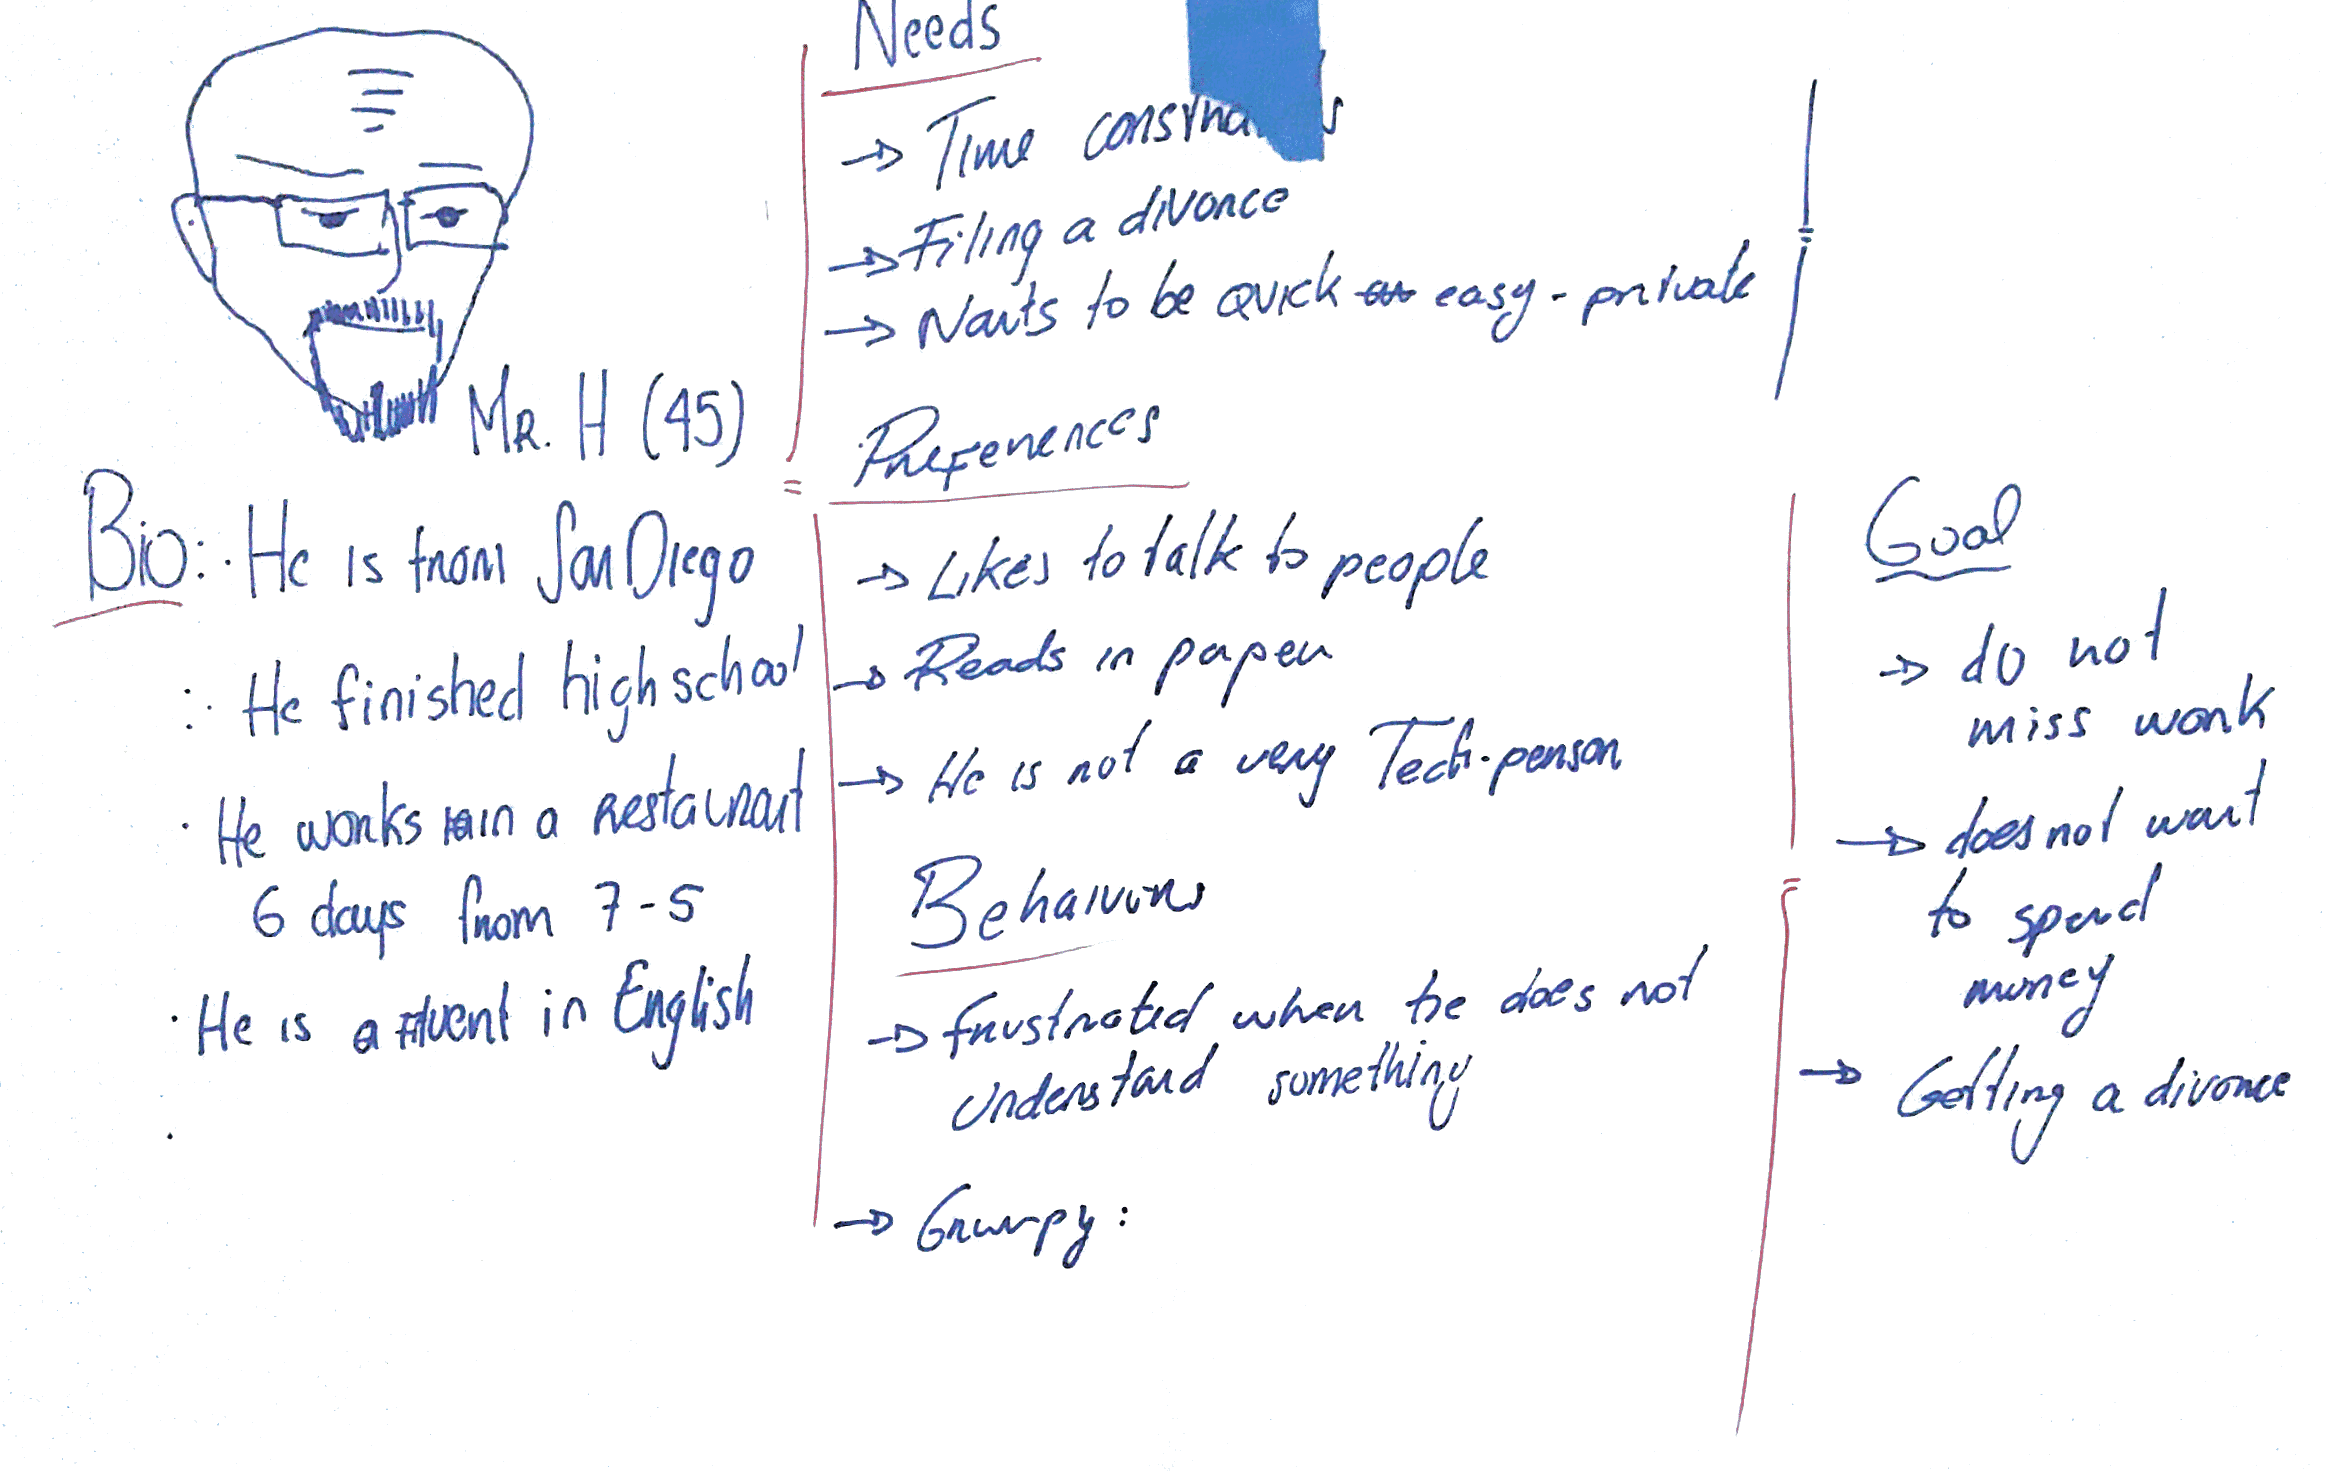 Mr. H (45)
Bio: · He is from San Diego
· He finished high school
· He works in a Restaurant
6 days from 7-5
· He is a fluent in English
Needs
→ Time
→ Filing a divorce
→ Wants to be quick easy - private
Preferences
→ Likes to talk to people
→ Reads in paper
→ He is not a very Tech-person
Behaivors
→ frustrated when he does not
understand something
→ Grumpy:
Goal
→ do not
miss work
→ does not want
to spend
money
→ Getting a divorce